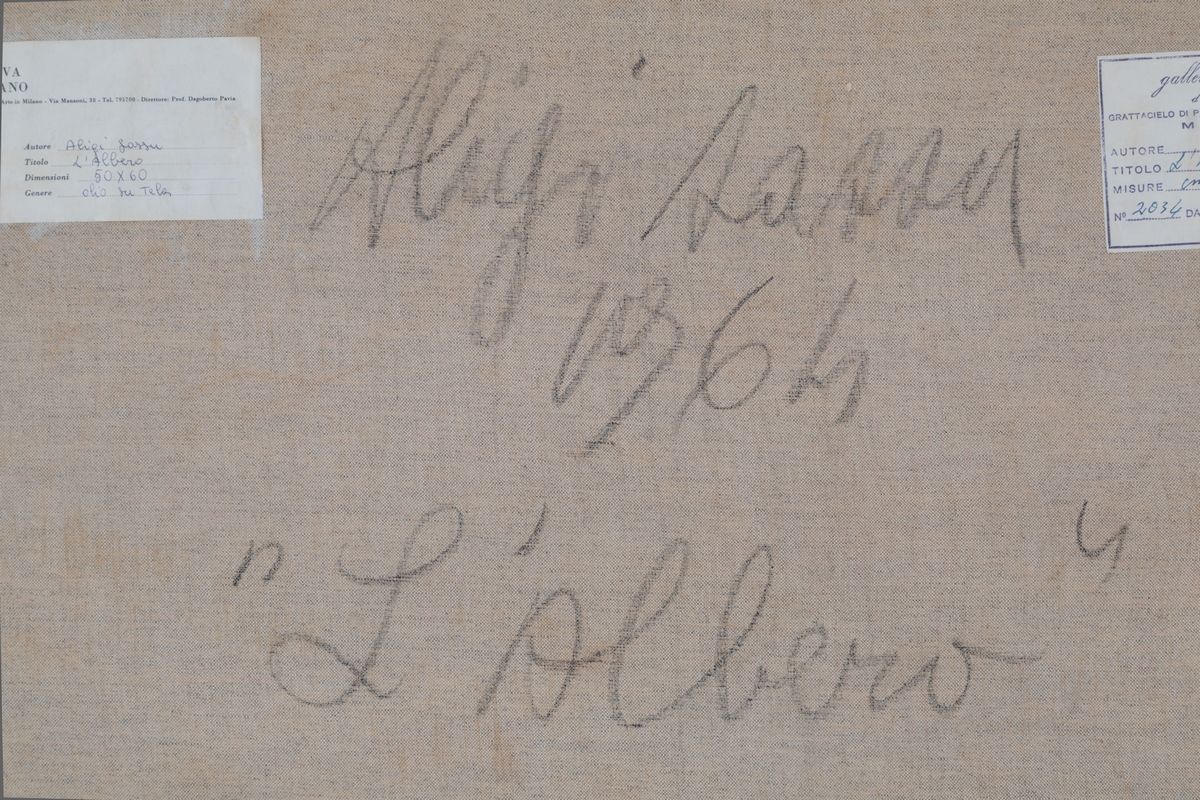 VA
ANO
Arte in Milano - Via Manzoni, 38 - Tel. 793700 - Direttore: Prof. Dagoberto Pavia
Autore Aligi Sassu
Titolo L'Albero
Dimensioni 50 X 60
Genere olio su Tela
Aligi Sassu
1964
"L'Albero"
galle
d
GRATTACIELO DI P
M
AUTORE
TITOLO L'
MISURE cm
N° 2034 DA